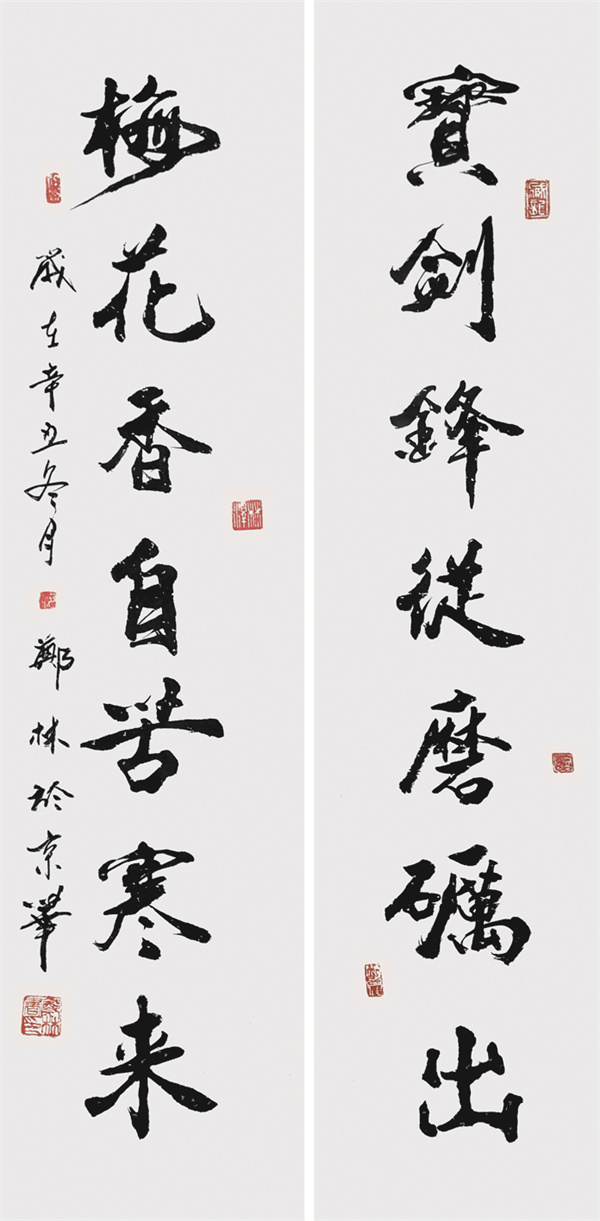 寶劍鋒從磨礪出
梅花香自苦寒来
歲在辛丑冬月 鄭林於京華